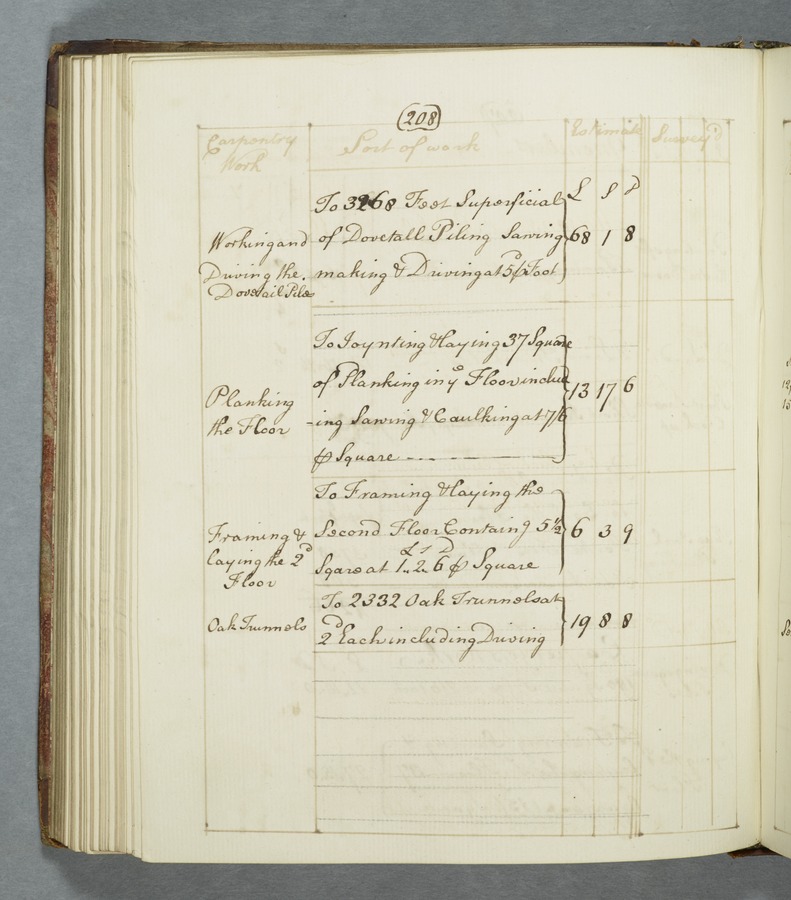 (208)
Carpentry Work
Sort of work
Estimate
Survey'd
£ S D
Working and
Driving the
Dovetail Piles
To 3268 Feet Superficial
of Dovetall Piling Sawing
making & Driving at 5d ⅌ Foot
68 1 8
Planking
the Floor
To Joynting & laying 37 Square
of Planking in ye Floor includ
-ing Sawing & Caulking at 7/6
⅌ Square
13 17 6
Framing &
laying the 2d
Floor
To Framing & laying the
Second Floor Containg 5½
Sqare at 1.. 2.. 6 ⅌ Square
£ s D
6 3 9
Oak Trunnels
To 2332 Oak Trunnels at
2d Each including Driving
19 8 8